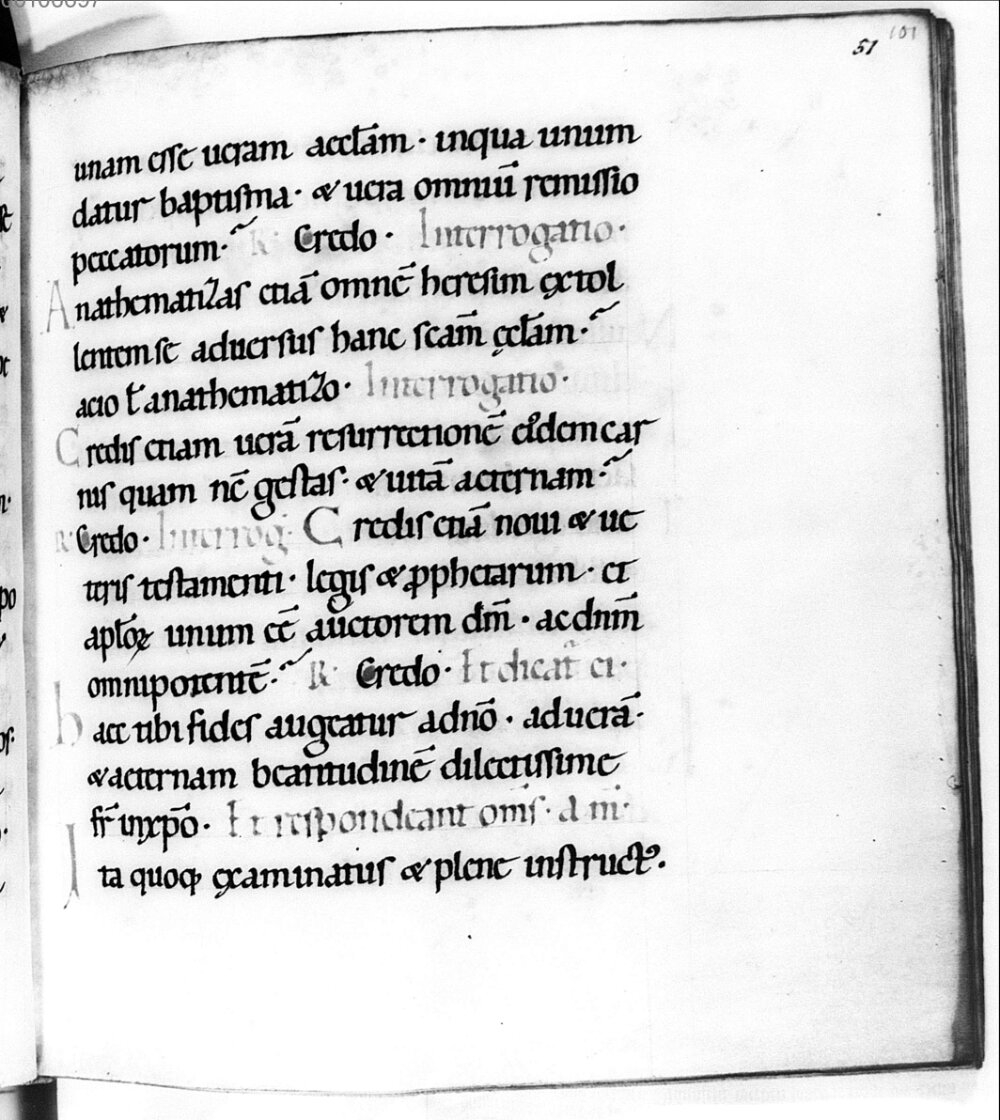 51 101
unam esse ueram aecclam̄ · inqua unum
datur baptisma · & uera omniū remissio
peccatorum · R̄ Credo · Interrogatio ·
Anathematizas etiā omnē heresim extol
lentem se aduersus hanc sc̄am ęccl̄am ·
acio t̄ anathematizo · Interrogatio ·
Credis etiam uerā resurrectionē eı᷒dem car
nis quam nc̄ gestas · & uitā aeternam ·
R̄ Credo · Interrog̅ · Credis etiā noui & ue
teris testamenti · legis & ꝓphetarum · et
apl̄oꝝ unum eē auctorem dm̄ · ac dnm̄
omnipotentē · R̄ Credo · Et dicat̄ ei ·
haec tibi fides augeatur a dn̄o · ad uerā ·
& aeternam beatitudinē dilectissime
fr̄ in xp̄o · Et respondeant om̄s · Am̄ ·
Ita quoq; examinatus & plene instruct᷒ .